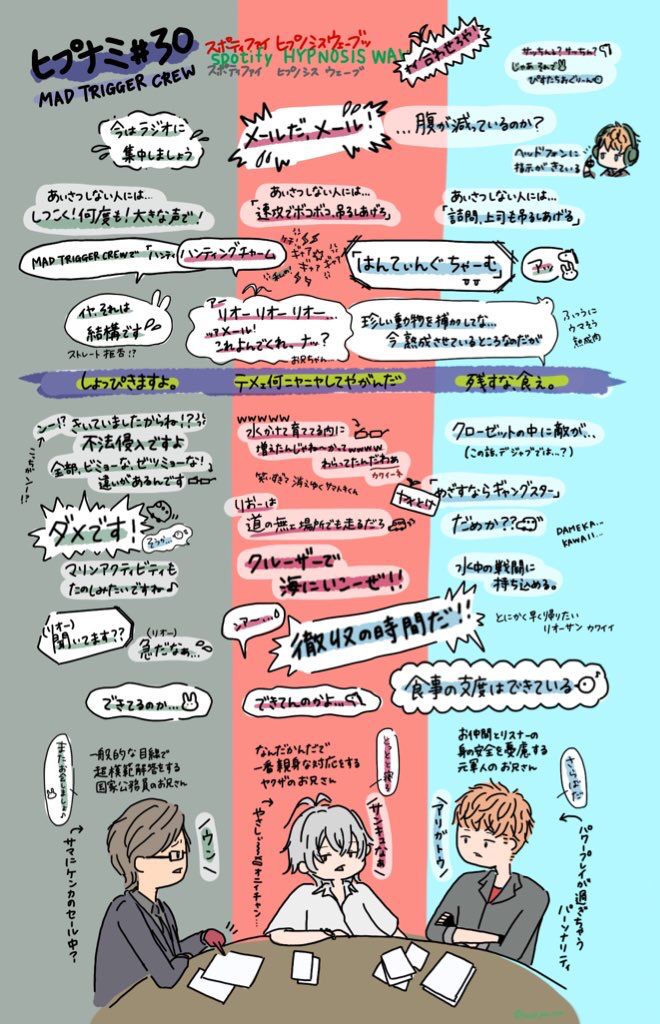 ヒプナミ#30
MAD TRIGGER CREW
スポティファイ ヒプノシスウェーブッ
spotify HYPNOSIS WAV
スポティファイ ヒプノシス ウェーブ
合わせろや!
サッちん?サッちん?
じゃあ
今はラジオに
集中しましょう
メールだ、メール!
...腹が減っているのか?
ヘッドフォンに
指示がきている
あいさつしない人には...
しつこく!何度も!大きな声で!
あいさつしない人には...
「速攻でボコボコ、吊るしあげろ」
あいさつしない人には...
「詰問、上司も吊るしあげる」
MAD TRIGGER CREWで「ハンティ
ハンティングチャーム
ギャア
ギャア ギャア
「はんてぃんぐちゃーむ」
アッ
イヤ それは
結構です
ストレート拒否!?
アー
リオー リオー リオー...
ッッアメール!
これよんでくれ、ナッ?
お兄ちゃん...
珍しい動物を捕かくしてな...
今熟成させているところなのだが
ふつうに
ウマそう
熟成肉
しょっぴきますよ。
テメェ何ニヤニヤしてやがんだ
残すな、食え。
ンー!?きいていましたからね!?
不法侵入ですよ
全部、ビミョーな、ゼツミョーな!
違いがあるんです
こっちがンー!?
wwwww
水かけて育ててる内に
増えたんじゃねーかってwwww
わらってたんだわぁ
カワイーネ
笑いすぎて消えゆくサマトキくん
クローゼットの中に敵が...
(この話、デジャブでは...?)
ダメです!
そうか...
りおーは
道の無え場所でも走るだろ
ヤイとけ
「めざすならギャングスター」
だめか??
DAMEKA...
KAWAII...
マリンアクティビティも
たのしみたいですね♪
クルーザーで
海にいこーぜ!!
水中の戦闘に
持ち込める。
(リオー)
聞いてます??
(リオー)
急だなぁ...
シアー...
徹収の時間だ!!
とにかく早く帰りたい
リオーサン カワイイ
できてるのか...
できてんのかよ...
食事の支度はできている
またお会いしましょ♪
一般的な目線で
超模範解答をする
国家公務員のお兄さん
なんだかんだで
一番親身な対応をする
ヤクザのお兄さん
お仲間とリスナーの
身の安全を憂慮する
元軍人のお兄さん
さらばだ
ウン
サマにケンカのセール中?
やさしい〜オニイチャン...
サンキュなぁ
アリガトウ
パワープレイが過ぎちゃう
パーソナリティ